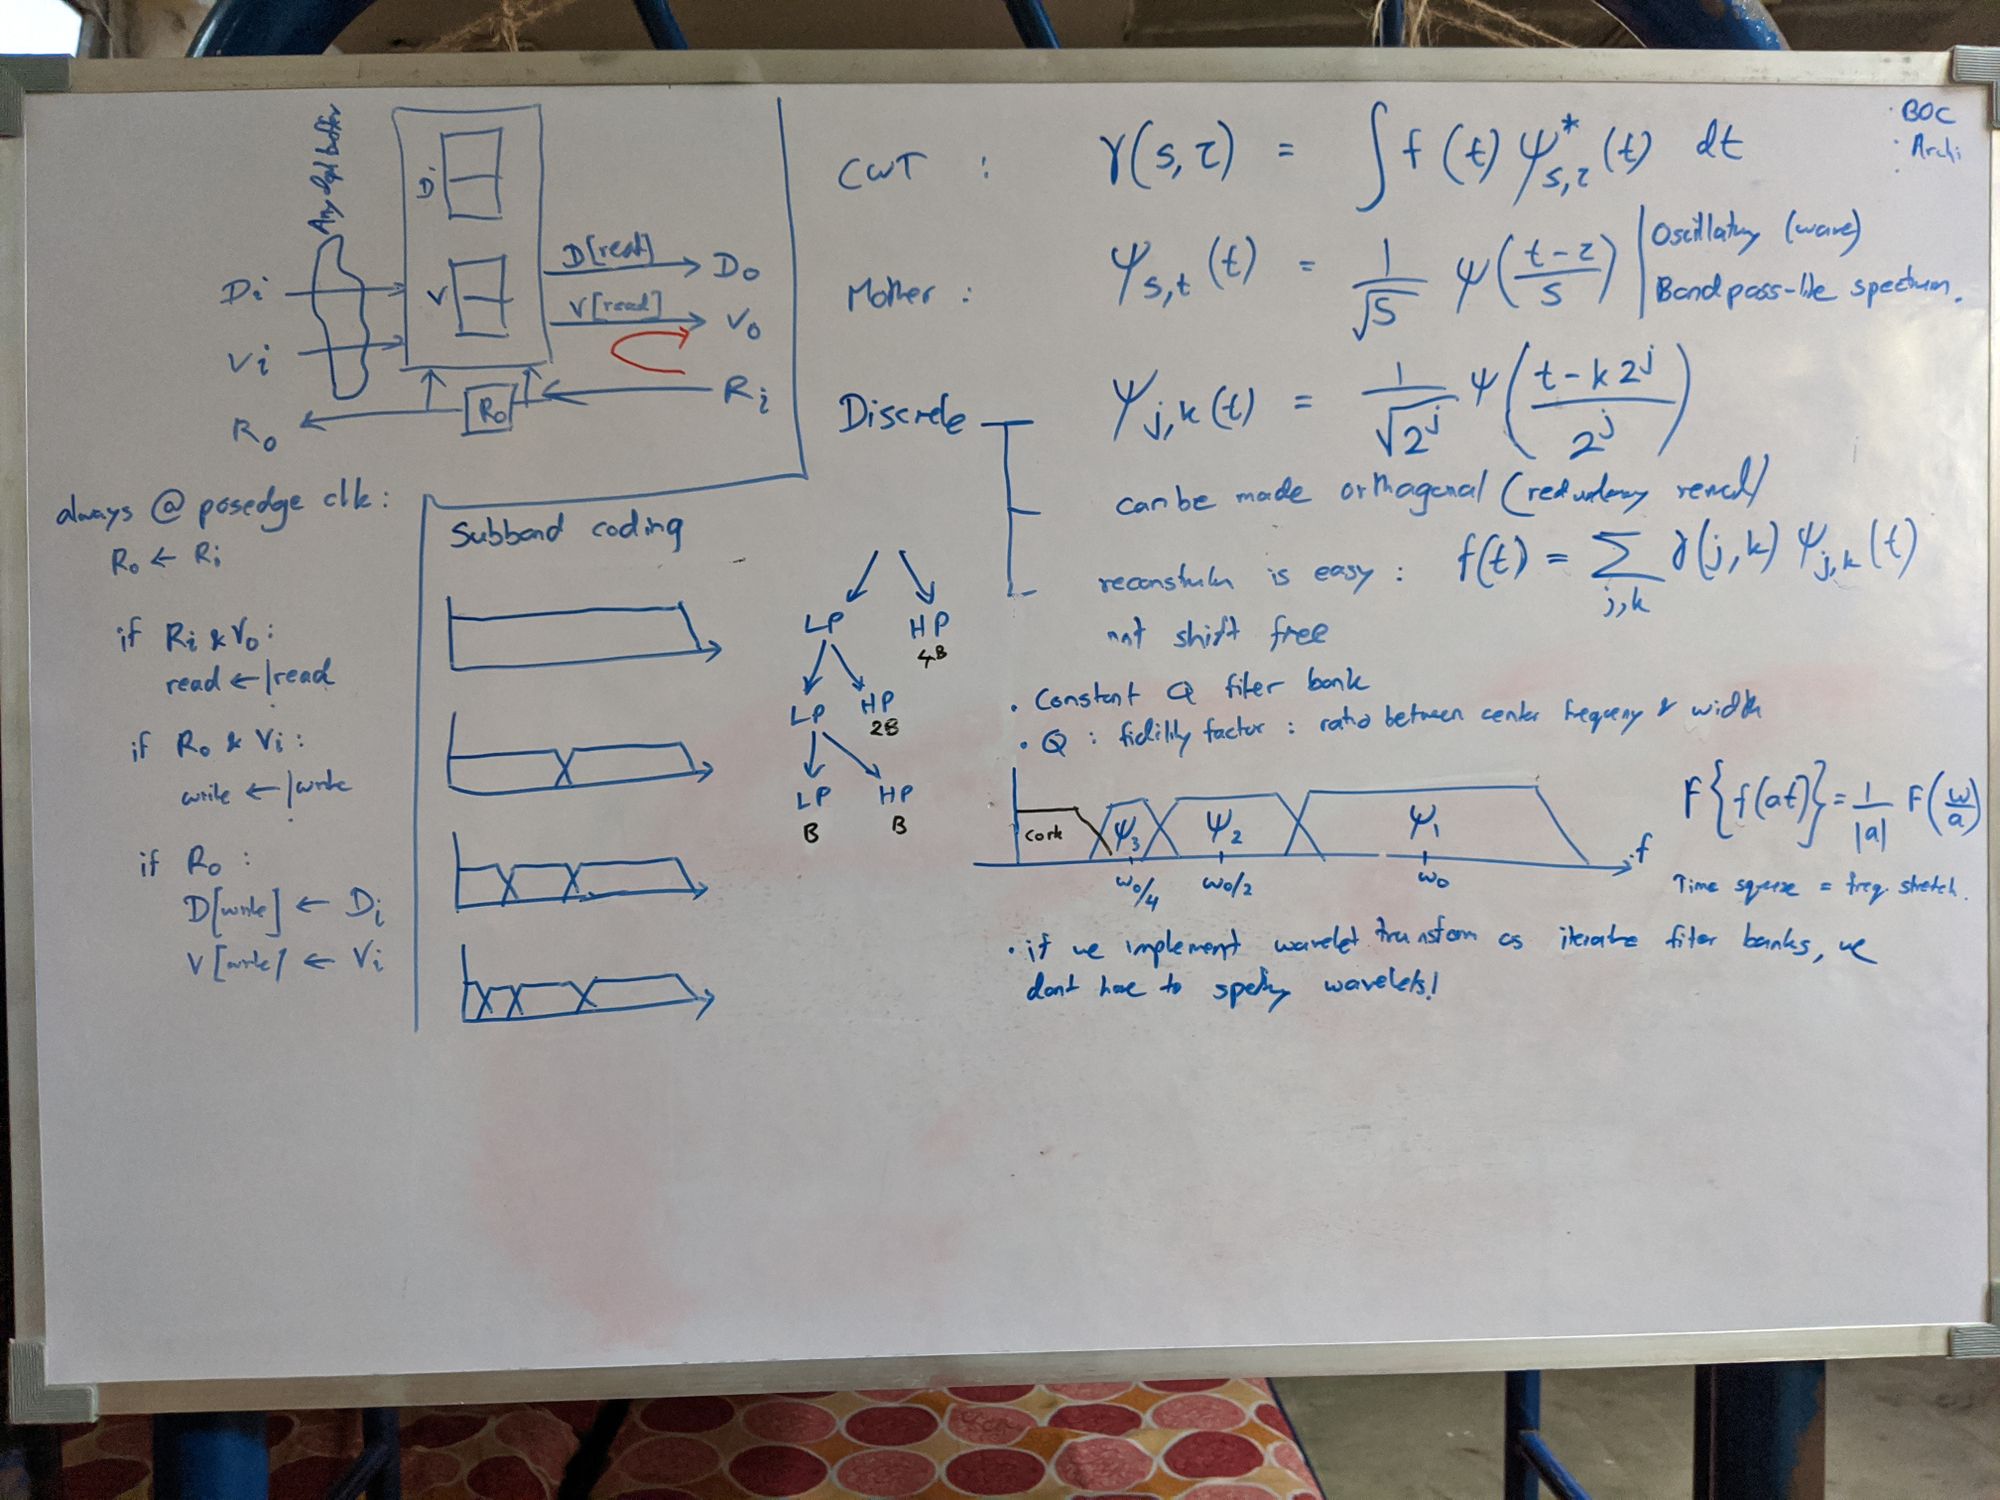 Any
D
V
Di
Vi
Ro
D[read]
Do
V[read]
Vo
Ro
Ri
always @ posedge clk:
Ro ← Ri
if Ri & Vo:
read ← !read
if Ro & Vi:
write ← !write
if Ro:
D[write] ← Di
V[write] ← Vi
Subband coding
LP HP
4B
LP HP
2B
LP HP
B B
CWT : γ(s,τ) = ∫ f(t) ψ*s,τ(t) dt
Mother : ψs,t(t) = 1/√s ψ((t-τ)/s)
Oscillatory (wave)
Bandpass-like spectrum.
Discrete
ψj,k(t) = 1/√2^j ψ((t-k2^j)/2^j)
can be made orthagonal (redundancy
is easy : f(t) = Σj,k γ(j,k) ψj,k(t)
not shift free
• Constant Q filter bank
• Q : fidility factor : ratio between center frequency & width
cork ψ3 ψ2 ψ1
f
ω0/4 ω0/2 ω0
F{f(at)} = 1/|a| F(ω/a)
Time squeeze = freq. stretch.
• if we implement wavelet transform as iterative filter banks, we
dont have to specify wavelets!
BOC
Archi